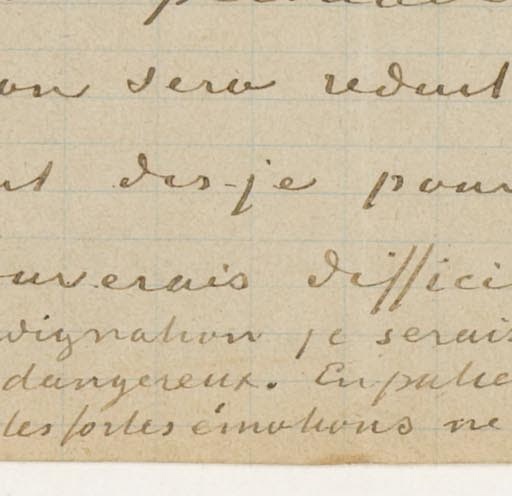 on sera reduit
dis-je pour
ouverais diffici
dignation je serais
dangereux. En patie
les fortes émotions ne